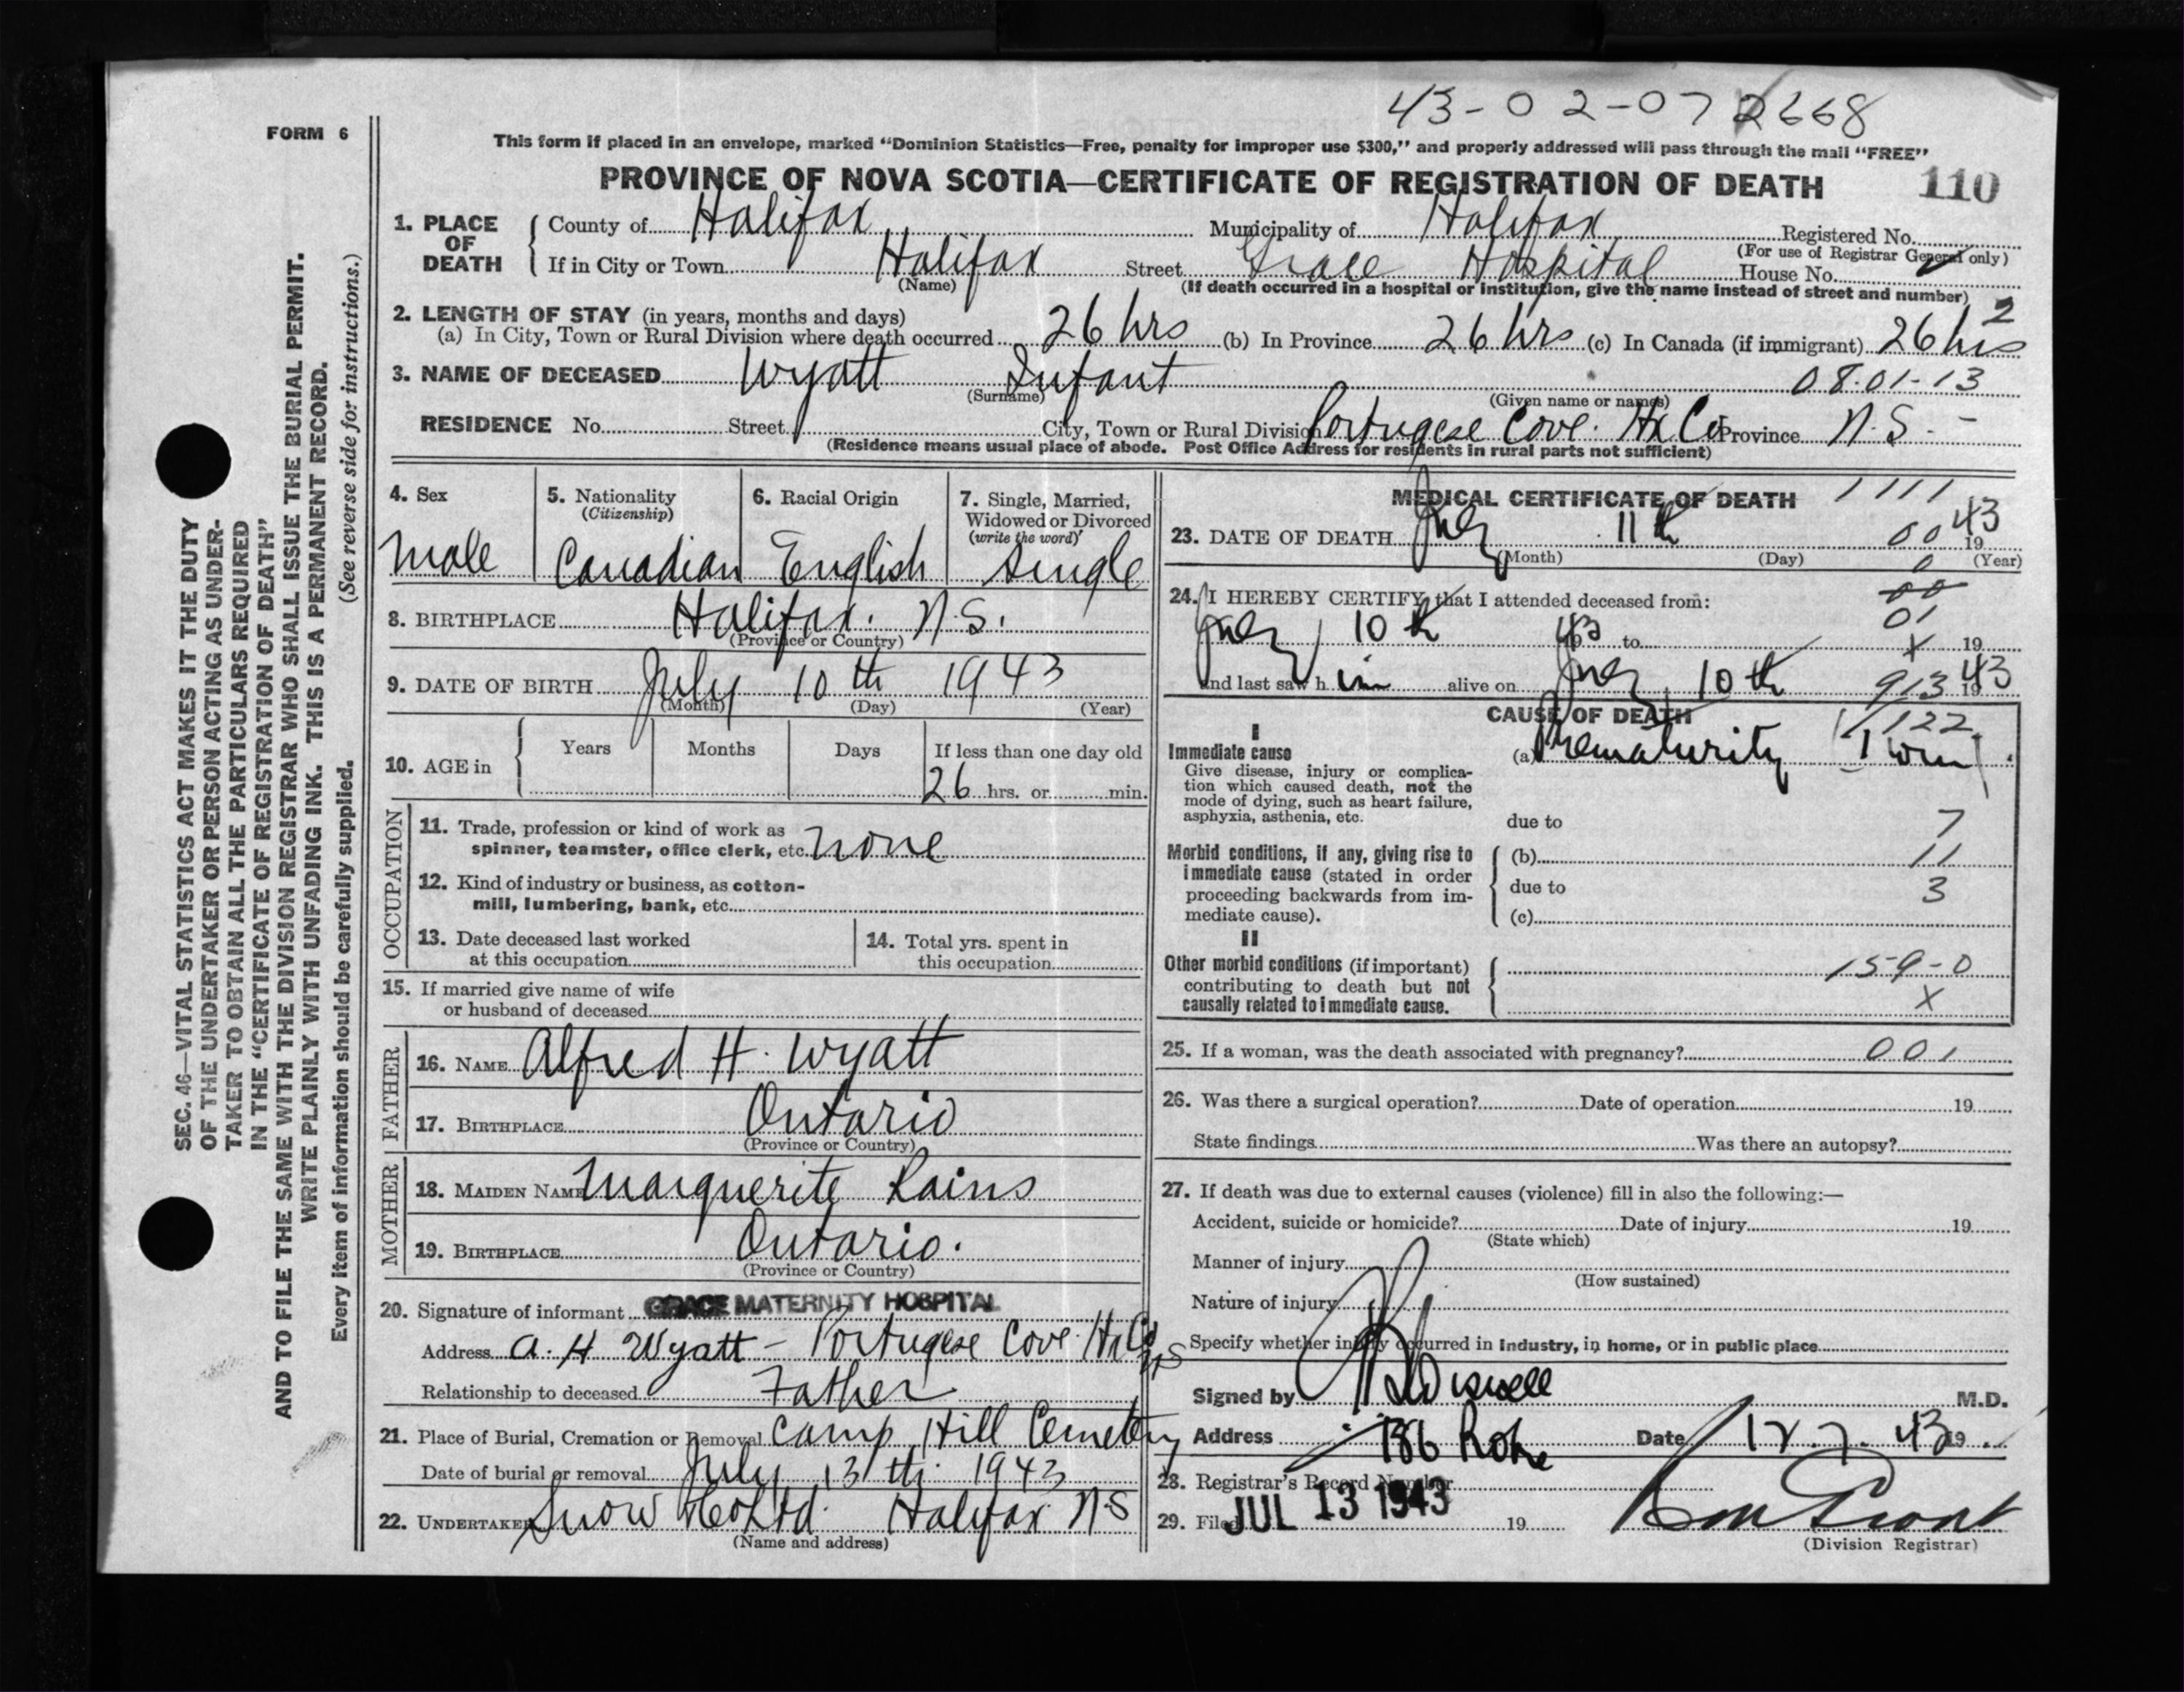 43-02-07 2668
FORM 6
This form if placed in an envelope, marked "Dominion Statistics—Free, penalty for improper use $300," and properly addressed will pass through the mail "FREE"
PROVINCE OF NOVA SCOTIA—CERTIFICATE OF REGISTRATION OF DEATH 110
1. PLACE OF DEATH County of Halifax Municipality of Halifax Registered No.
(For use of Registrar General only)
If in City or Town Halifax Street Grace Hospital House No.
(Name) (If death occurred in a hospital or institution, give the name instead of street and number)
2. LENGTH OF STAY (in years, months and days) 2
(a) In City, Town or Rural Division where death occurred 26 hrs (b) In Province 26 hrs (c) In Canada (if immigrant) 26 hrs
3. NAME OF DECEASED Wyatt Infant 08-01-13
(Surname) (Given name or names)
RESIDENCE No. Street City, Town or Rural Division Portugese Cove. Hx Co Province N.S. -
(Residence means usual place of abode. Post Office Address for residents in rural parts not sufficient)
4. Sex 5. Nationality (Citizenship) 6. Racial Origin 7. Single, Married, Widowed or Divorced (write the word)
Male Canadian English Single
8. BIRTHPLACE Halifax. N.S.
(Province or Country)
9. DATE OF BIRTH July 10th 1943
(Month) (Day) (Year)
10. AGE in Years Months Days If less than one day old
26 hrs. or min.
OCCUPATION
11. Trade, profession or kind of work as
spinner, teamster, office clerk, etc. none
12. Kind of industry or business, as cotton-
mill, lumbering, bank, etc.
13. Date deceased last worked
at this occupation
14. Total yrs. spent in
this occupation
15. If married give name of wife
or husband of deceased
FATHER
16. NAME Alfred H. Wyatt
17. BIRTHPLACE Ontario
(Province or Country)
MOTHER
18. MAIDEN NAME Marguerite Rains
19. BIRTHPLACE Ontario.
(Province or Country)
20. Signature of informant GRACE MATERNITY HOSPITAL
Address A. H Wyatt - Portugese Cove Hx Co NS
Relationship to deceased Father
21. Place of Burial, Cremation or Removal Camp Hill Cemetery
Date of burial or removal July 13th 1943
22. UNDERTAKER Snow & Co Ltd. Halifax N.S
(Name and address)
MEDICAL CERTIFICATE OF DEATH 1111
23. DATE OF DEATH July 11th 00 1943
(Month) (Day) (Year)
0
24. I HEREBY CERTIFY that I attended deceased from: 00
01
July 10th 43 to X 19
and last saw h im alive on July 10th 913 1943
CAUSE OF DEATH
1122
I
Immediate cause (a) Prematurity (Twin)
Give disease, injury or complica-
tion which caused death, not the
mode of dying, such as heart failure,
asphyxia, asthenia, etc.
due to 7
Morbid conditions, if any, giving rise to
immediate cause (stated in order
proceeding backwards from im-
mediate cause).
(b) 11
due to 3
(c)
II
Other morbid conditions (if important)
contributing to death but not
causally related to immediate cause.
159-0
X
25. If a woman, was the death associated with pregnancy? 001
26. Was there a surgical operation? Date of operation 19
State findings Was there an autopsy?
27. If death was due to external causes (violence) fill in also the following:—
Accident, suicide or homicide? Date of injury 19
(State which)
Manner of injury
(How sustained)
Nature of injury
Specify whether injury occurred in industry, in home, or in public place
Signed by M.D.
Address 186 Date 12.7.43 19
28. Registrar's Record Number
29. Filed JUL 13 1943 19
(Division Registrar)
SEC. 46—VITAL STATISTICS ACT MAKES IT THE DUTY
OF THE UNDERTAKER OR PERSON ACTING AS UNDER-
TAKER TO OBTAIN ALL THE PARTICULARS REQUIRED
IN THE "CERTIFICATE OF REGISTRATION OF DEATH"
AND TO FILE THE SAME WITH THE DIVISION REGISTRAR WHO SHALL ISSUE THE BURIAL PERMIT.
WRITE PLAINLY WITH UNFADING INK. THIS IS A PERMANENT RECORD.
Every item of information should be carefully supplied. (See reverse side for instructions.)